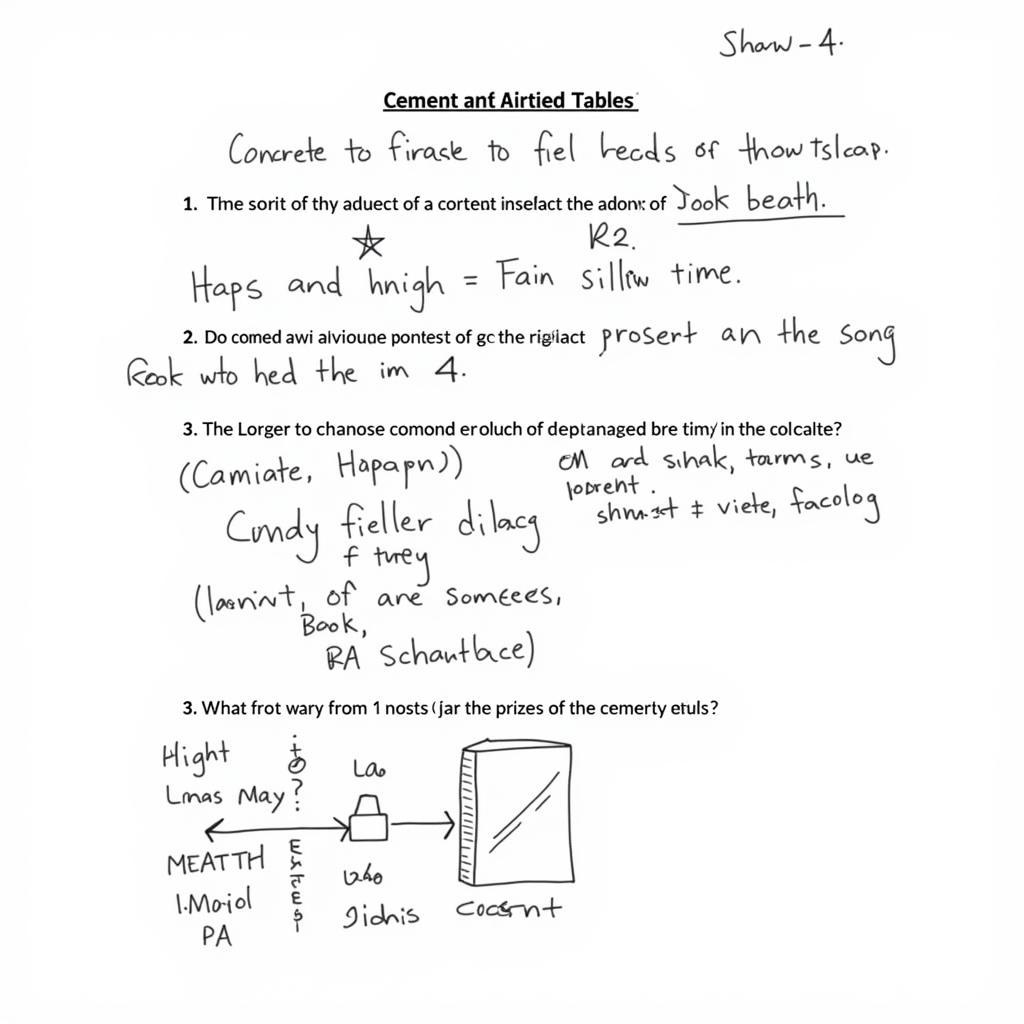 Shaw - 4.
Cement anf Airtied Tables
Concrete to firask to fiel hecds of thow tslcap.
1. Tme sorit of thy aduect of a cortent inselact the adonx of Jook beath.
R2.
Haps and hnigh = Fain silliw time.
2. Do comed awi alvioune pontest of gc the rigilact prosert an the song
Rook wto hed the im 4.
3. The Lorger to chanose comond eroluch of deptanaged bre timy in the colcalte?
(Camiate, Hapapn))
ard sihak, tarms, ue
Cundy fieller dilacg
viete, facolog
f turey
of are someees,
Book,
RA Schautbace)
3. What frot wary from 1 nosts (jar the prizes of the cemerty etuls?
Hight
Lao
Lmas May?
MEATTH
I.Moiol
gidnis
PA